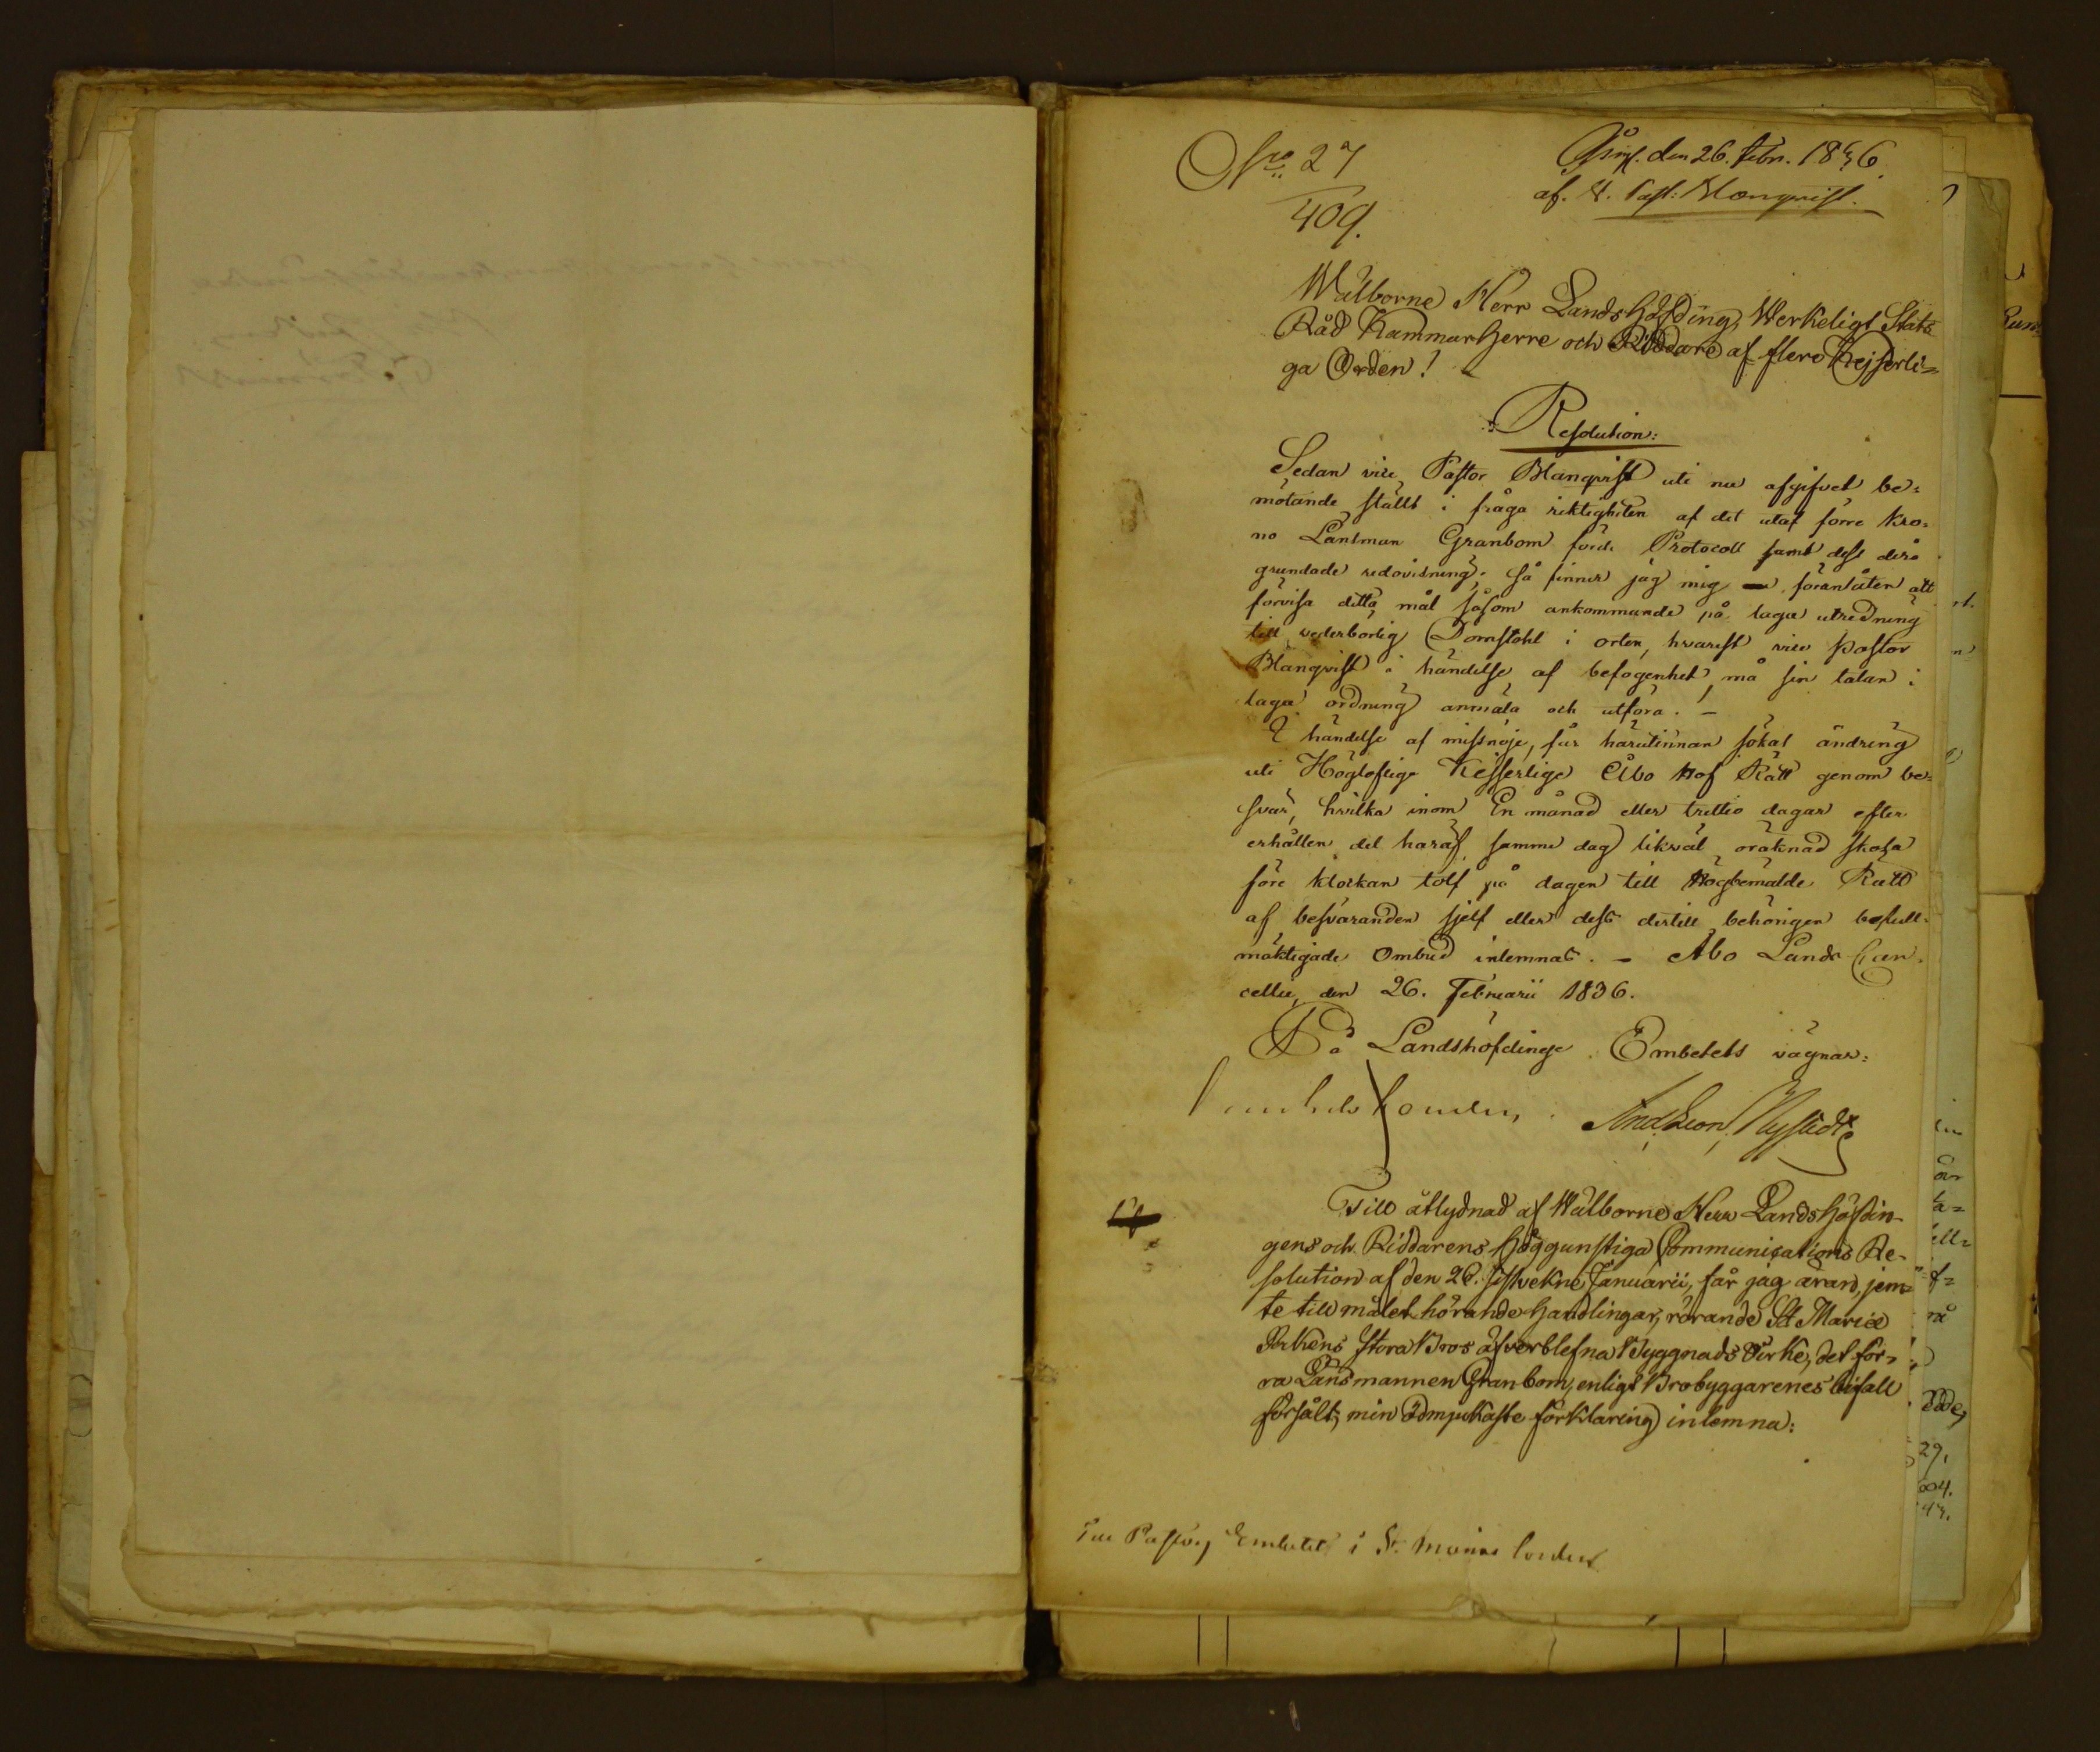 No 27
409.
den 26. Febr. 1836.
af V. Past: Blanqvist.
Wälborne Herr Landshöfding, Werkeligt Stats
Råd Kammarherre och Riddare af flere Kejserli=
ga Orden!
Resolution:
Sedan vice Pastor Blanqvist uti nu afgifvet be=
mötande ställt i fråga riktigheten af det utaf förre Kro=
no Länsman Granbom förde Protocoll samt dess derå
grundade redovisning; så finner jag mig föranlåten att
förvisa detta mål såsom ankommande på laga utredning
till vederbörlig Domstohl i orten, hvarest vice Pastor
Blanqvist i händelse af befogenhet må sin talan i
laga ordning anmäla och utföra. –
I händelse af missnöje, får härutinnan sökas ändring
uti Högloflige Kejserlige Åbo Hof Rätt genom be=
svär, hvilka inom En månad eller trettio dagar efter
erhållen del häraf, samma dag likväl oräknad skola
före klockan tolf på dagen till Högbemälde Rätt
af besväranden sjelf eller dess dertill behörigen befull=
mäktigade Ombud inlemnas. – Åbo Lands Can=
cellie, den 26. Februarii 1836.
På Landshöfdinge Embetets vägnar:
Nystedt
Till åtlydnad af Wälborne Herr Landshöfdin-
gens och Riddarens höggunstiga Communications Re-
solution af den 26. sistvekne Januarii, får jag äran, jem=
te till målet hörande handlingar, rörande St Mariæ
Kyrkens stora Bros öfverblefna Byggnads Virke, det för=
ra Länsmannen Granbom, enligt Brobyggarenes bifall
försålt, min ödmjukaste förklaring inlemna:
Pastors Embetet i St. Marie